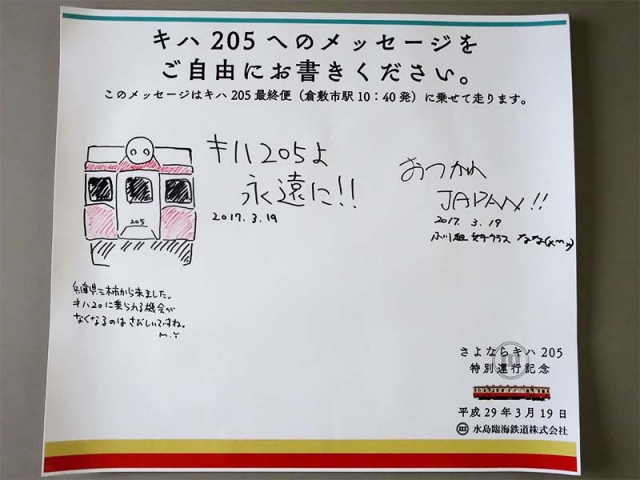 キハ205へのメッセージを
ご自由にお書きください。
このメッセージはキハ205最終便（倉敷市駅10：40発）に乗せて走ります。
205
キハ205よ
永遠に!!
2017.3.19
おつかれ
JAPAN!!
2017.3.19
兵庫県三木市から来ました。
キハ20に乗られる機会が
なくなるのはさびしいですね。
M.Y
さよならキハ205
特別運行記念
平成29年3月19日
水島臨海鉄道株式会社